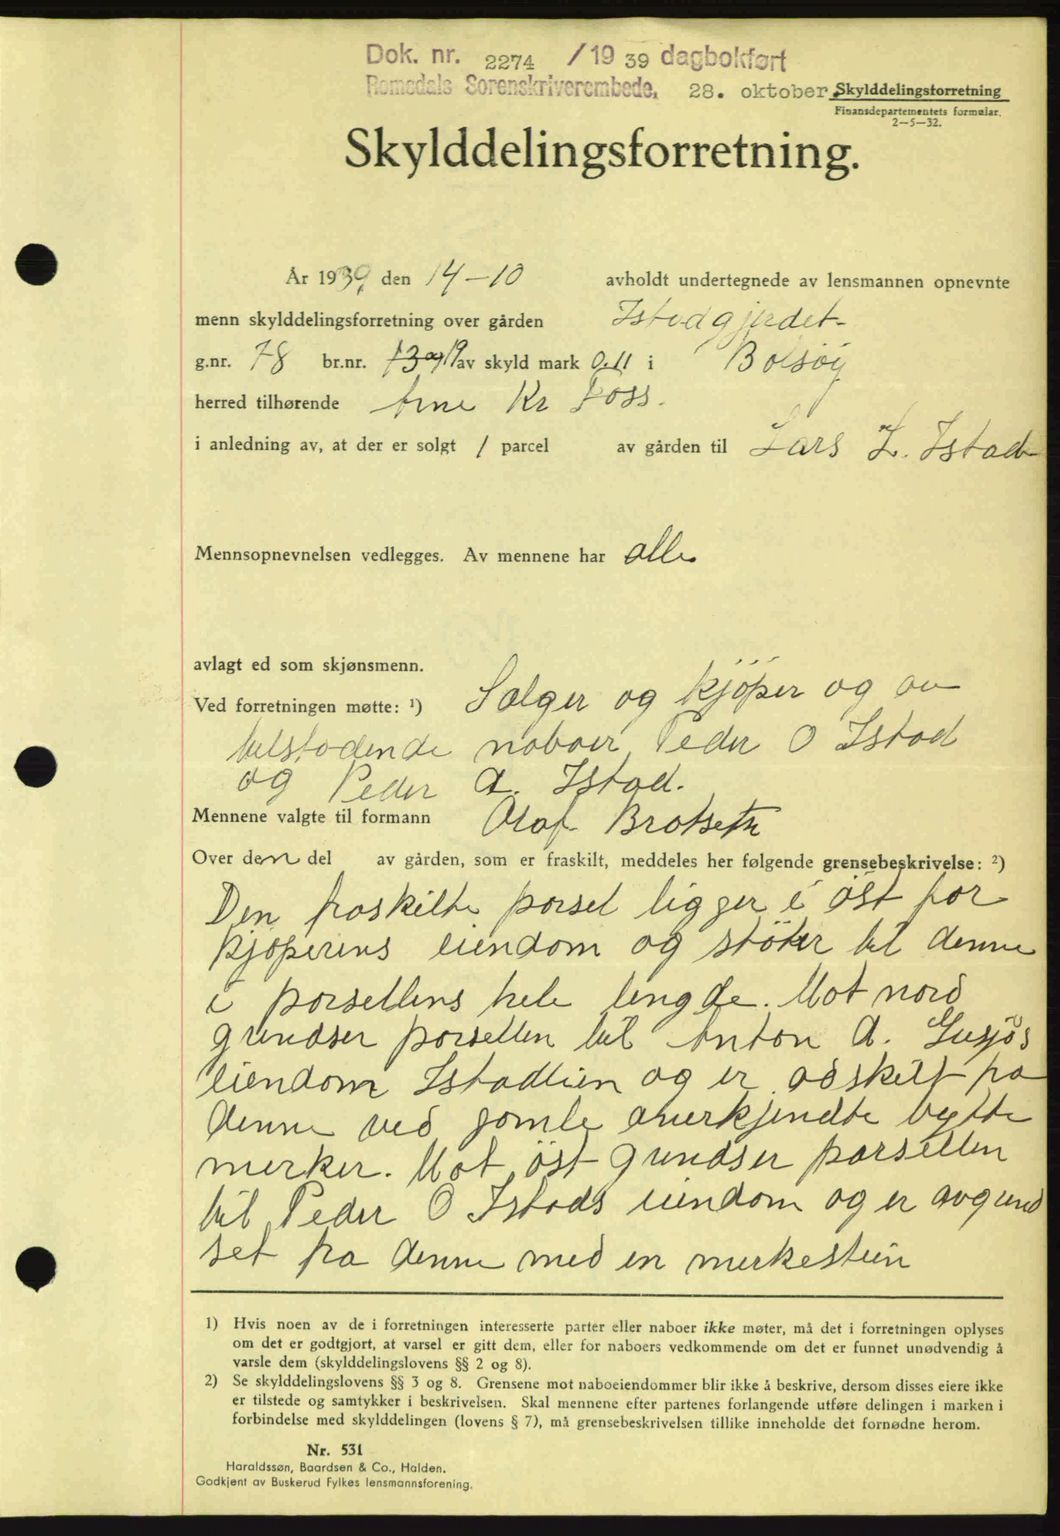 Dok. nr. 2274 /1939 dagbokført
Romsdals Sorenskriverembede, 28. oktober Skylddelingsforretning
Finansdepartementets formular.
2—5—32.
Skylddelingsforretning.
År 1939, den 14-10 avholdt undertegnede av lensmannen opnevnte
menn skylddelingsforretning over gården Istadgjerdet
g.nr. 78 br.nr. 13 og 19 av skyld mark 0.11 i Bolsøy
herred tilhørende Arne Kr Foss.
i anledning av, at der er solgt 1 parcel av gården til Lars L. Istad
Mennsopnevnelsen vedlegges. Av mennene har alle
avlagt ed som skjønsmenn.
Ved forretningen møtte: ¹) Sælger og kjöper og av
tilstødende naboer Peder O Istad
og Peder A. Istad.
Mennene valgte til formann Olaf Brokseth
Over den del av gården, som er fraskilt, meddeles her følgende grensebeskrivelse: ²)
Den fraskilte parsel ligger i öst for
kjöperens eiendom og stöter til denne
i parsellens hele lengde. Mot nord
grundser parsellen til Anton A. Gusjås
eiendom Istadlien og er adskilt fra
denne ved gamle anerkjendte bytte
merker. Mot öst grundser parsellen
til Peder O Istads eiendom og er avgrund
set fra denne med en merkestein
1) Hvis noen av de i forretningen interesserte parter eller naboer ikke møter, må det i forretningen oplyses
om det er godtgjort, at varsel er gitt dem, eller for naboers vedkommende om det er funnet unødvendig å
varsle dem (skylddelingslovens §§ 2 og 8).
2) Se skylddelingslovens §§ 3 og 8. Grensene mot naboeiendommer blir ikke å beskrive, dersom disses eiere ikke
er tilstede og samtykker i beskrivelsen. Skal mennene efter partenes forlangende utføre delingen i marken i
forbindelse med skylddelingen (lovens § 7), må grensebeskrivelsen tillike inneholde det fornødne herom.
Nr. 531
Haraldssøn, Baardsen & Co., Halden.
Godkjent av Buskerud Fylkes lensmannsforening.